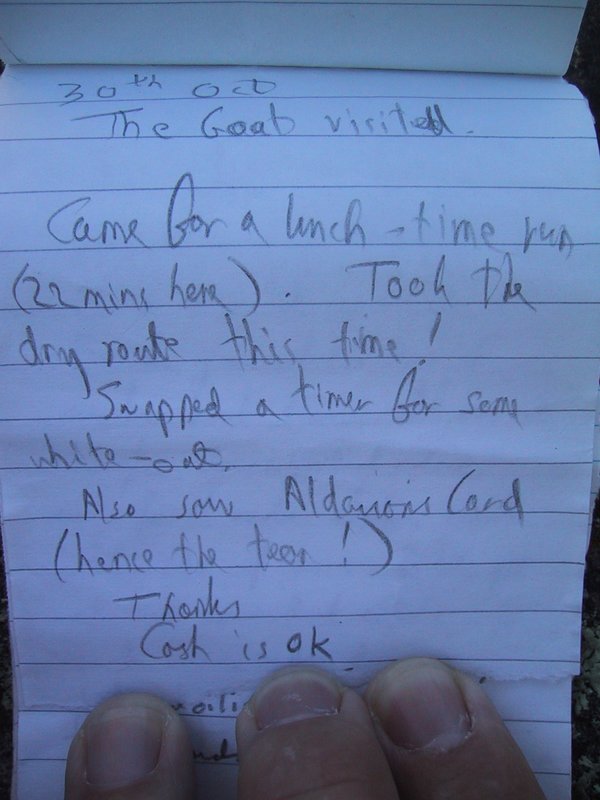 30th Oct
The Goat visited.
Came for a lunch-time run
(22 mins here). Took the
dry route this time!
Swapped a timer for some
white-out.
Also saw Aldarion's Card
(hence the tear!)
Thanks
Cash is OK